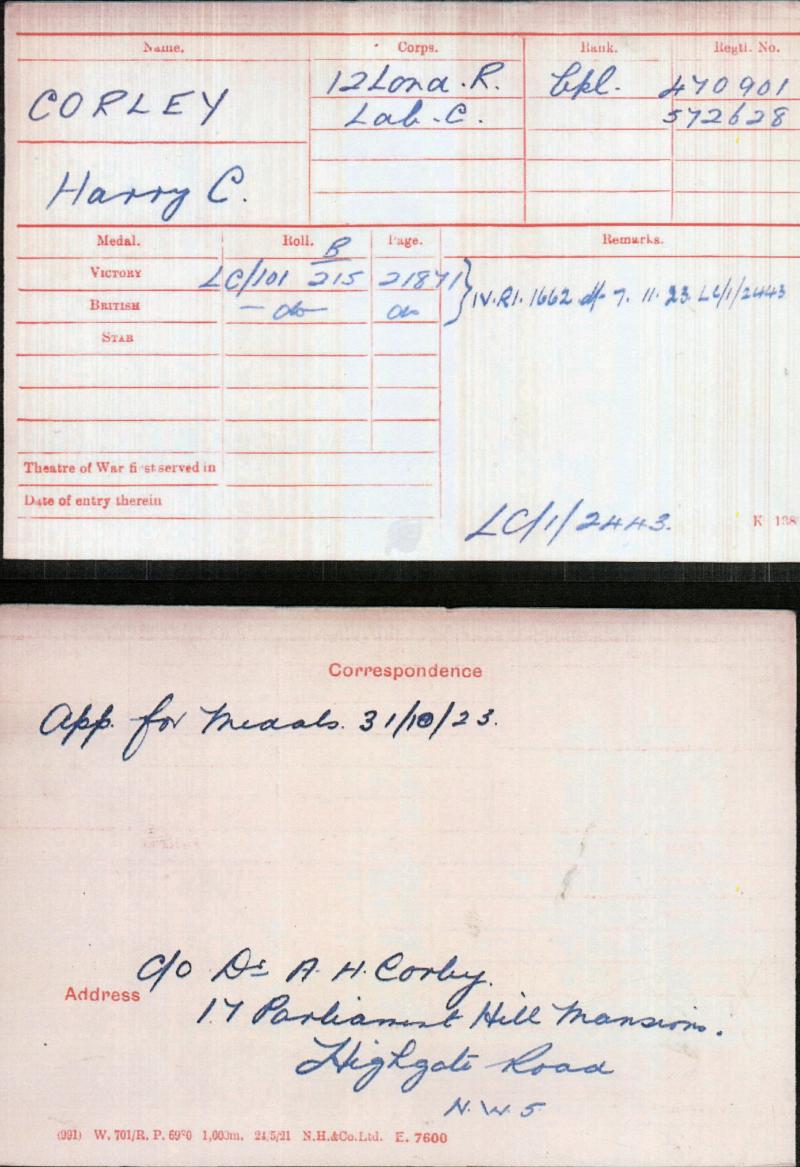 Name. Corps. Rank. Regtl. No.
CORLEY 12 Lond. R. Cpl. 470901
Lab. C. 572628
Harry C.
Medal. Roll. Page. Remarks.
B
VICTORY LC/101 215 21871 } IV. RI. 1662 df 7. 11. 23 LC/1/2443
BRITISH — do — do
STAR
Theatre of War first served in
Date of entry therein
LC/1/2443.
K 138
Correspondence
App. for Medals. 31/10/23.
c/o Dr A. H. Corley.
Address
17 Parliament Hill Mansions.
Highgate Road
N.W.5
(991) W. 701/R. P. 6990 1,000m. 24/5/21 N.H.&Co.Ltd. E. 7600